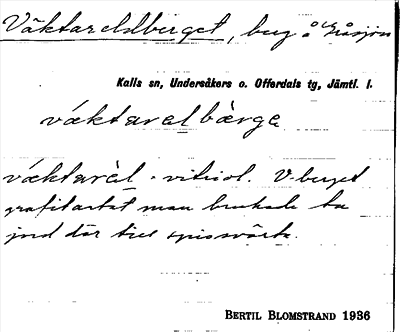 Väktarelsberget, berg å Kåsjön
Kalls sn, Undersåkers o. Offerdals tg, Jämtl. l.
váktarel bærge
váktarèl - vitriol. V-berget
grafitartat man brukade ta
jord där till spissvärta.
BERTIL BLOMSTRAND 1936